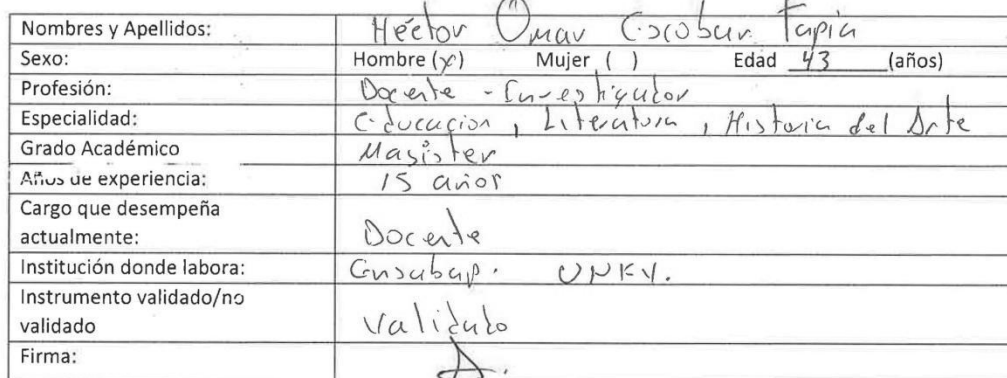 Nombres y Apellidos: Héctor Omar Escobar Tapia
Sexo: Hombre (x) Mujer ( ) Edad 43 (años)
Profesión: Docente - Investigador
Especialidad: Educacion, Literatura, Historia del Arte
Grado Académico Magister
Años de experiencia: 15 años
Cargo que desempeña
actualmente: Docente
Institución donde labora: Ensabap.
Instrumento validado/no
validado Validado
Firma: